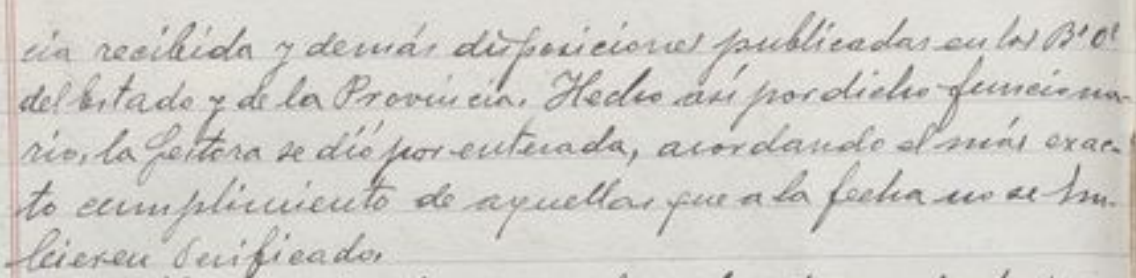 cia recibida y demás disposiciones publicadas en los B's O's
del Estado y de la Provincia. Hecho así por dicho funciona-
rio, la Gestora se dió por enterada, acordando el más exac-
to cumplimiento de aquellas que a la fecha no se hu-
bieren verificado.